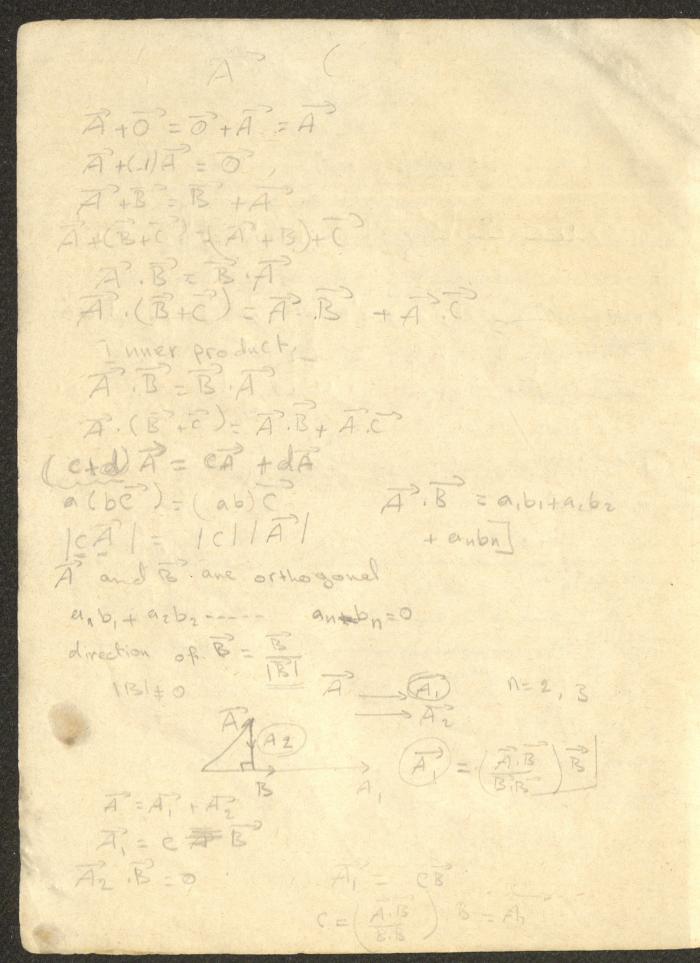 A⃗ (
A⃗ + O⃗ = O⃗ + A⃗ = A⃗
A⃗ + (-1)A⃗ = O⃗,
A⃗ + B⃗ = B⃗ + A⃗
A⃗ + (B⃗ + C⃗) = (A⃗ + B) + C⃗
A⃗ · B⃗ = B⃗ · A⃗
A⃗ · (B⃗ + C⃗) = A⃗ · B⃗ + A⃗ · C⃗
Inner product,
A⃗ · B⃗ = B⃗ · A⃗
A⃗ · (B⃗ + C⃗) = A⃗ · B⃗ + A⃗ · C⃗
(c+d) A⃗ = cA⃗ + dA⃗
a(bC⃗) = (ab)C⃗
|cA⃗| = |c| |A⃗|
A⃗ · B⃗ = a₁b₁ + a₂b₂
+ aₙbₙ]
A⃗ and B⃗ are orthogonal
a₁b₁ + a₂b₂ ------ aₙbₙ = 0
direction of B⃗ = B⃗/|B⃗|
|B| ≠ 0
A⃗ → A⃗₁
→ A⃗₂
n = 2, 3
A⃗ A2
B A₁
A⃗₁ = (A⃗·B⃗/B⃗·B⃗) B⃗
A⃗ = A⃗₁ + A⃗₂
A⃗₁ = c B⃗
A⃗₂ · B⃗ = 0
A⃗₁ = cB⃗
C = (A⃗·B⃗/B·B) B =